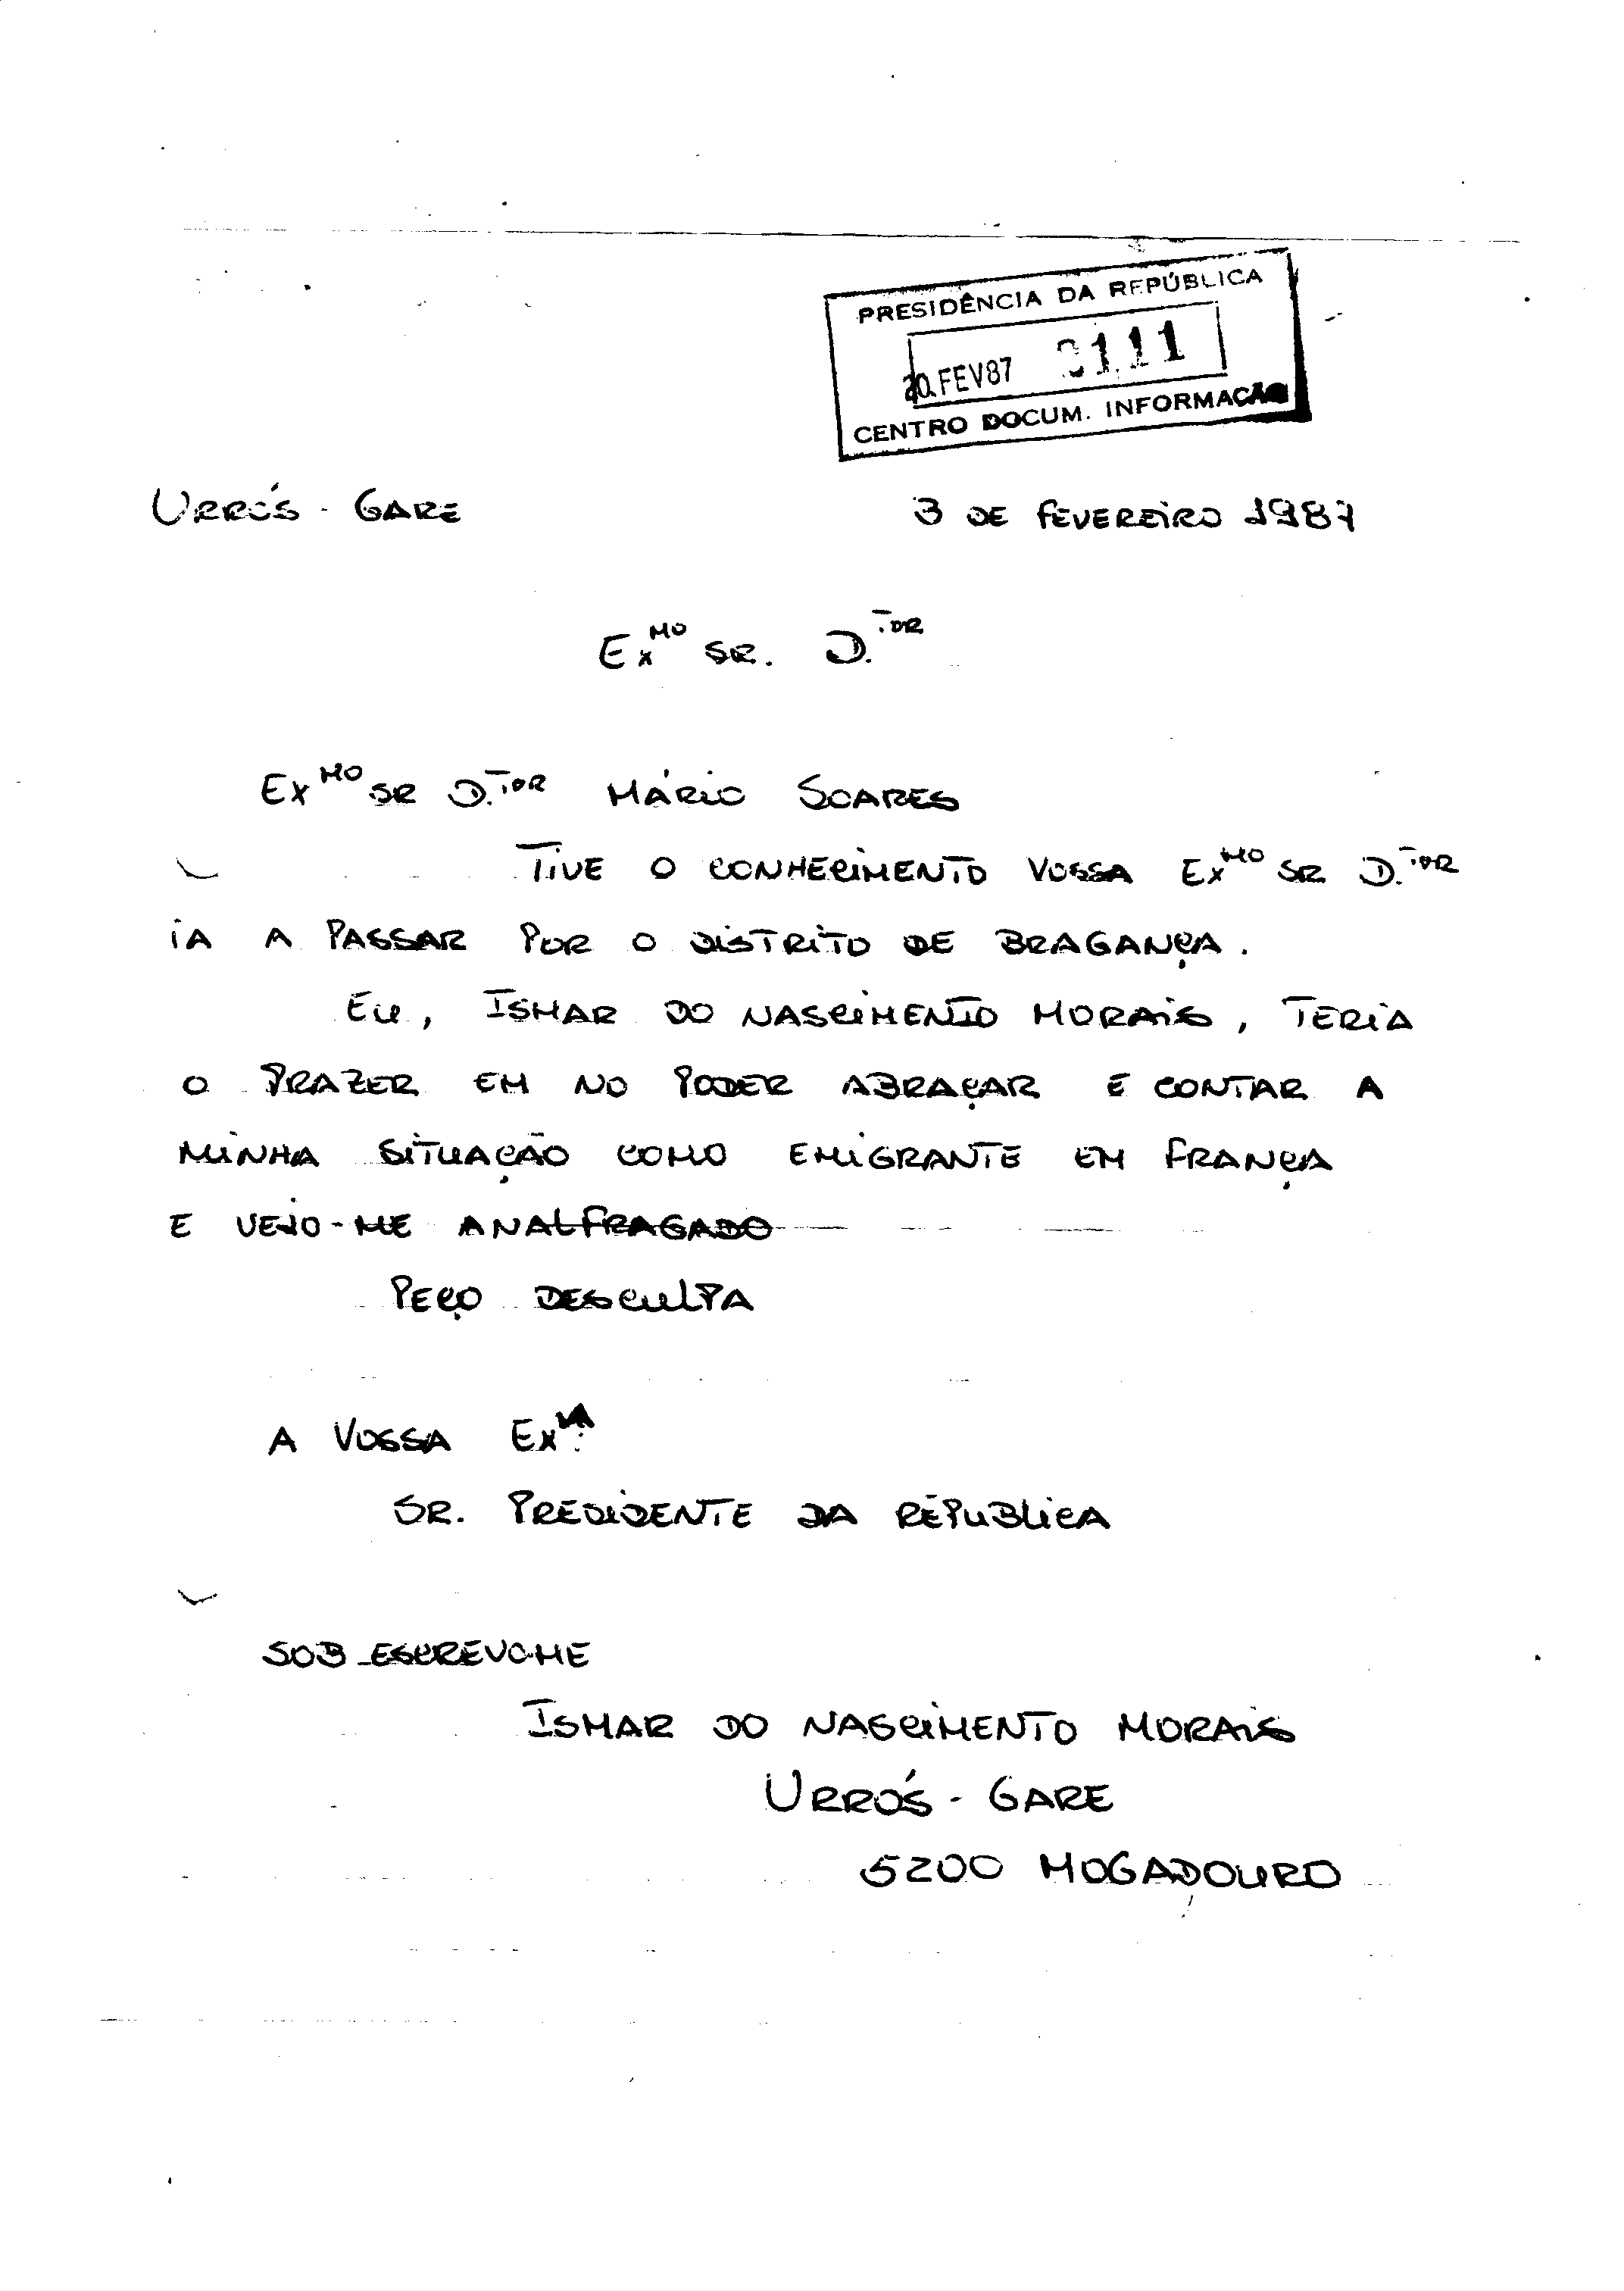 PRESIDÊNCIA DA REPÚBLICA
20.FEV87 3111
CENTRO DOCUM. INFORMAÇÃO
URRÓS - GARE 3 DE FEVEREIRO 1987
EXMO SR. D.TOR
EXMO SR D.TOR MÁRIO SOARES
TIVE O CONHECIMENTO VOSSA EXMO SR D.TOR
IA A PASSAR POR O DISTRITO DE BRAGANÇA.
EU, ISMAR DO NASCIMENTO MORAIS, TERIA
O PRAZER EM NO PODER ABRAÇAR E CONTAR A
MINHA SITUAÇÃO COMO EMIGRANTE EM FRANÇA
E VEJO-ME ANALFRAGADO
PEÇO DESCULPA
A VOSSA EXIA.
SR. PREDIDENTE DA RÉPUBLICA
SOB-ESCREVO-ME
ISMAR DO NASCIMENTO MORAIS
URRÓS - GARE
5200 MOGADOURO